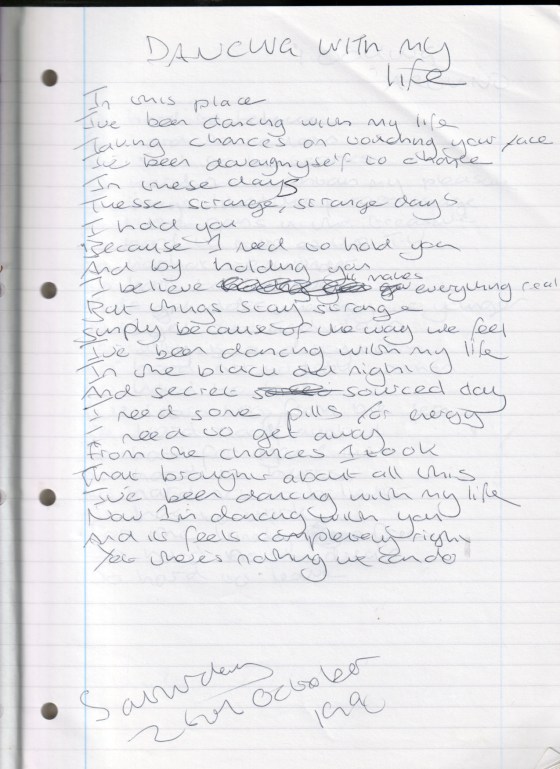 DANCING WITH MY
life
In this place
I've been dancing with my life
Taking chances on watching your face
I've been daring myself to choose
In these days
Thesse strange, strange days
I hold you
Because I need to hold you
And by holding you
I believe it makes everything real
But things stay strange
Simply because of the way we feel
I've been dancing with my life
In the black old night
And secret sourced day
I need some pills for energy
I need to get away
From the chances I took
That brought about all this
I've been dancing with my life
Now I'm dancing with you
And it feels completely right
Yet there's nothing we can do
Saturday
October